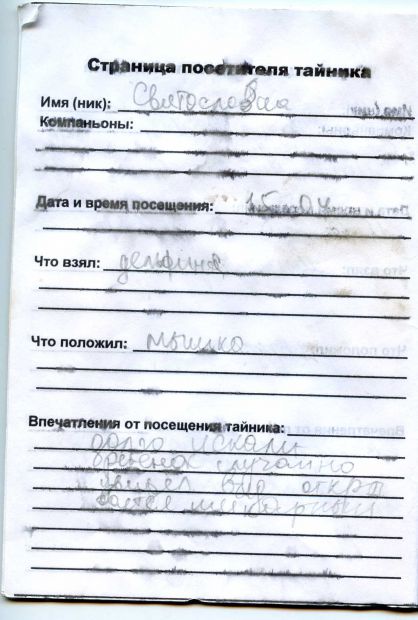 Страница посетителя тайника
Имя (ник): Святослав
Компаньоны:
Дата и время посещения:
Что взял: дельфина
Что положил: мышка
Впечатления от посещения тайника:
долго искали
случайно
вид откры
вается шикарный